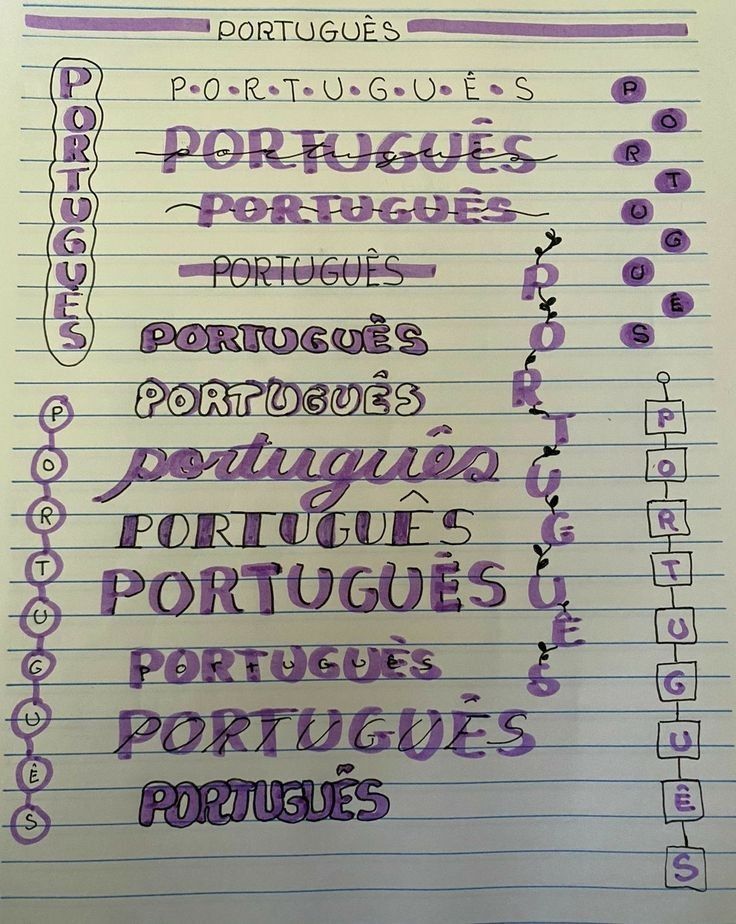 PORTUGUÊS
PORTUGUÊS
P•O•R•T•U•G•U•Ê•S
PORTUGUÊS
PORTUGUÊS
português
PORTUGUÊS
PORTUGUÊS
PORTUGUÊS
PORTUGUÊS
PORTUGUÊS
português
PORTUGUÊS
PORTUGUÊS
PORTUGUÊS
português
PORTUGUÊS
PORTUGUÊS
PORTUGUÊS
PORTUGUÊS
PORTUGUÊS